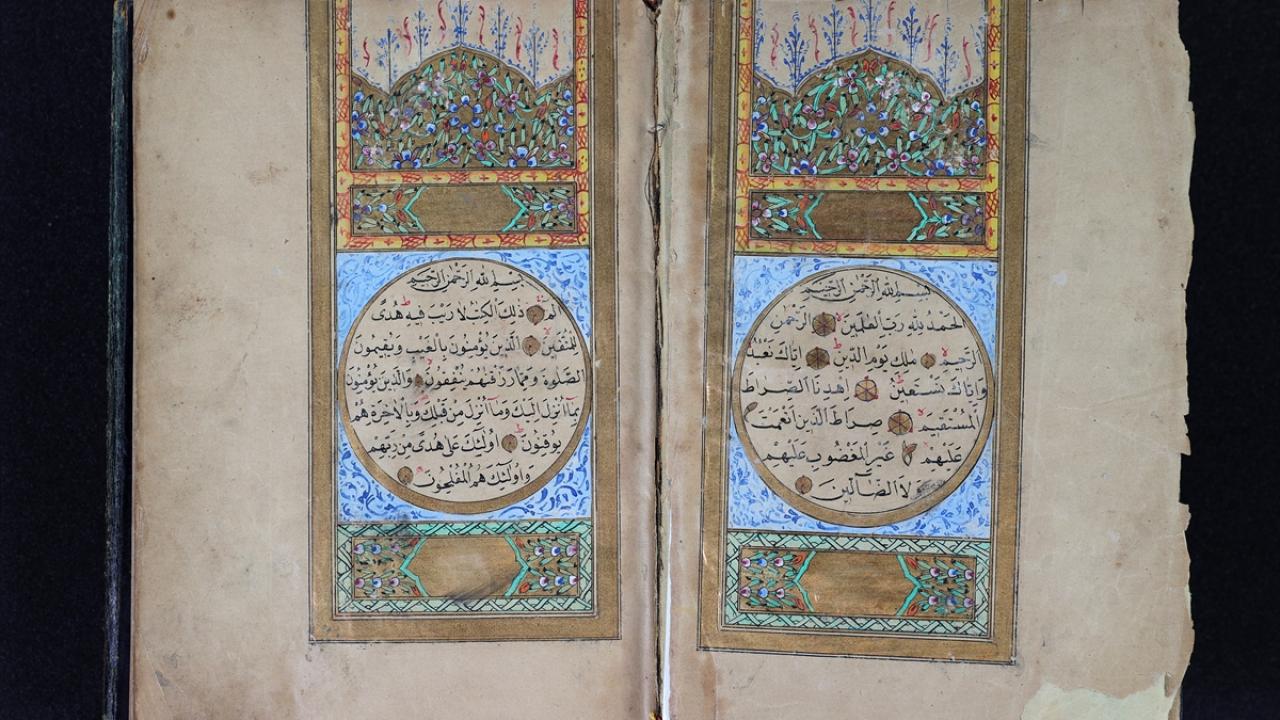 بِسْمِ اللهِ الرَّحْمٰنِ الرَّحِيمِ
اَلْحَمْدُ لِلهِ رَبِّ الْعٰلَمِينَ الرَّحْمٰنِ
الرَّحِيمِ مٰلِكِ يَوْمِ الدِّينِ اِيَّاكَ نَعْبُدُ
وَاِيَّاكَ نَسْتَعِينُ اِهْدِنَا الصِّرَاطَ
الْمُسْتَقِيمَ صِرَاطَ الَّذِينَ اَنْعَمْتَ
عَلَيْهِمْ غَيْرِ الْمَغْضُوبِ عَلَيْهِمْ
لَا الضَّالِّينَ
بِسْمِ اللهِ الرَّحْمٰنِ الرَّحِيمِ
الم ذٰلِكَ الْكِتٰبُ لَا رَيْبَ فِيهِ هُدًى
لِلْمُتَّقِينَ اَلَّذِينَ يُؤْمِنُونَ بِالْغَيْبِ وَيُقِيمُونَ
الصَّلٰوةَ وَمِمَّا رَزَقْنٰهُمْ يُنْفِقُونَ وَالَّذِينَ يُؤْمِنُونَ
بِمَا اُنْزِلَ اِلَيْكَ وَمَا اُنْزِلَ مِنْ قَبْلِكَ وَبِالْاٰخِرَةِ هُمْ
يُوقِنُونَ اُولٰئِكَ عَلٰى هُدًى مِنْ رَبِّهِمْ
وَاُولٰئِكَ هُمُ الْمُفْلِحُونَ